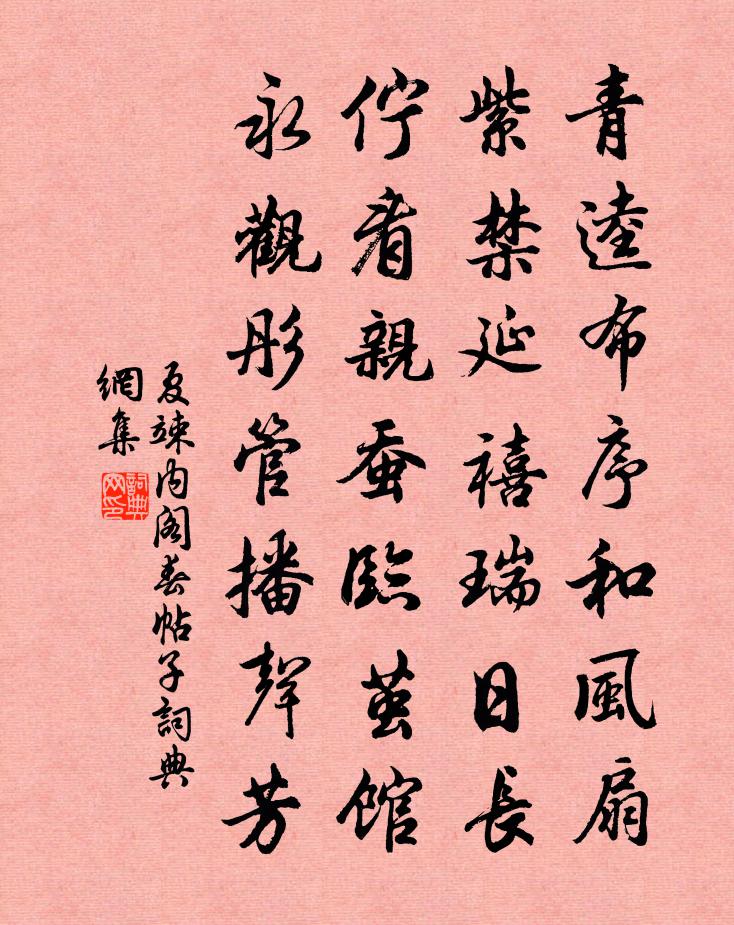 青逵布序和風扇
紫禁延禧瑞日長
佇看親蚕臨茧館
永觀彤管播聲芳
夏竦内阁春帖子詞典
網集
詞典
网印